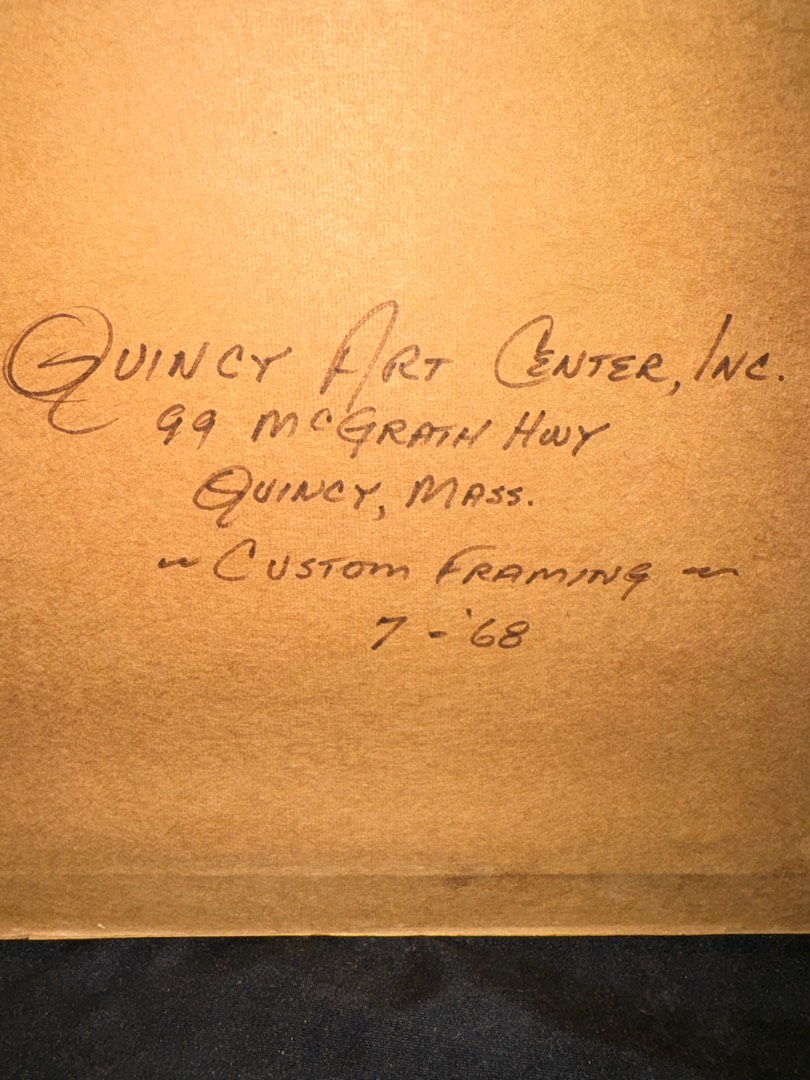 Quincy Art Center, Inc.
99 McGrath Hwy
Quincy, Mass.
~ Custom Framing ~
7-'68